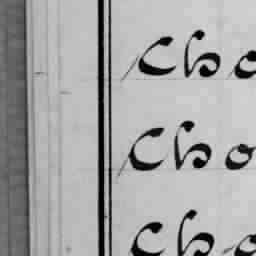 Cho
Cho
Cho